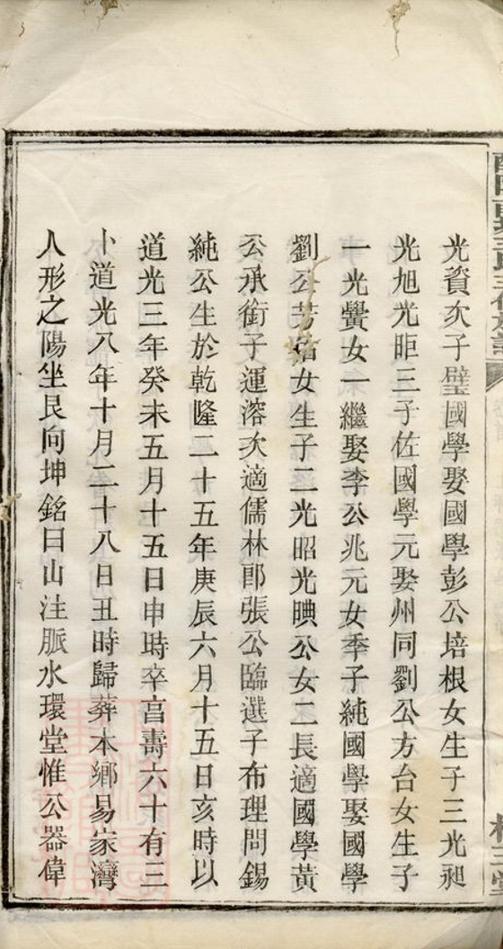 光資次子璧國學娶國學彭公培根女生子三光昶
光旭光昛三子佐國學元娶州同劉公方台女生子
一光黌女一繼娶李公兆元女季子純國學娶國學
劉公芳女生子二光昭光晪公女二長適國學黃
公承銜子運溶次適儒林郎張公臨選子布理問錫
純公生於乾隆二十五年庚辰六月十五日亥時以
道光三年癸未五月十五日申時卒亯壽六十有三
卜道光八年十月二十八日丑時歸葬本鄉易家灣
人形之陽坐艮向坤銘曰山注脈水環堂惟公器偉